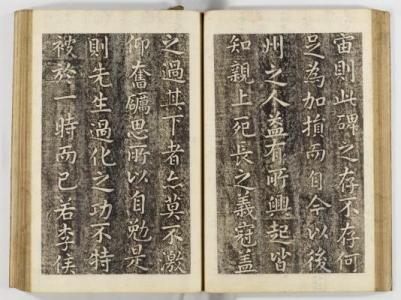 宙則此碑之存不存何
足為加損而自今以後
州之人益有所興起皆
知親上死長之義冠盖
之過其下者亦莫不激
仰奮礪思所以自勉是
則先生過化之功不特
被於一時而已若李侯